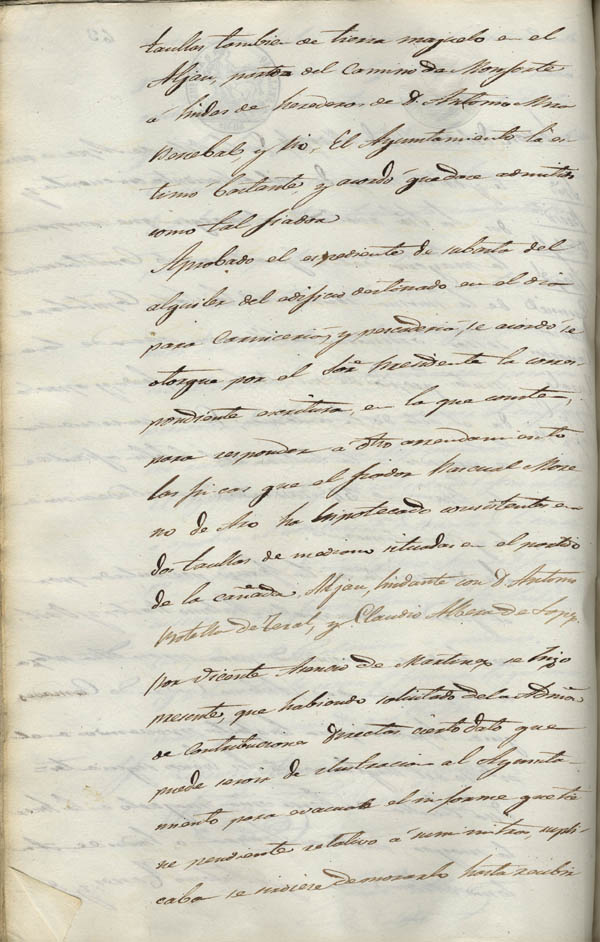 taullas tambien de tierra majuelo en el
Aljau, partida del Camino de Monforte
á lindes de herederos de D. Antonio Mira
Percebal, y Pio, El Ayuntamiento la es-
timó bastante, y acordó quedase admitido
como tal fiador
Aprobado el espediente de subasta del
alquiler del edificio destinado en el dia
para Carniceria, y pescaderia, se acordó se
otorgue por el Sor. Presidente la corres-
pondiente escritura, en la que conste,
para responder a dho arrendamiento
las fincas que el fiador Pascual More
no de Aro ha hipotecado consistentes en
dos taullas de situadas en el partido
de la cañada Aljau, lindante con D. Antonio
Botella de y Claudio de Lopez.
Por Vicente Asencio de Martinez se hizo
presente, que habiendo solicitado de la Admon
de Contribuciones directas cierto dato que
puede servir de ilustracion al Ayunta-
miento para evacuar el informe que tie
ne pendiente relativo á suministros, supli-
caba se sirviese demorarlo hasta recibir